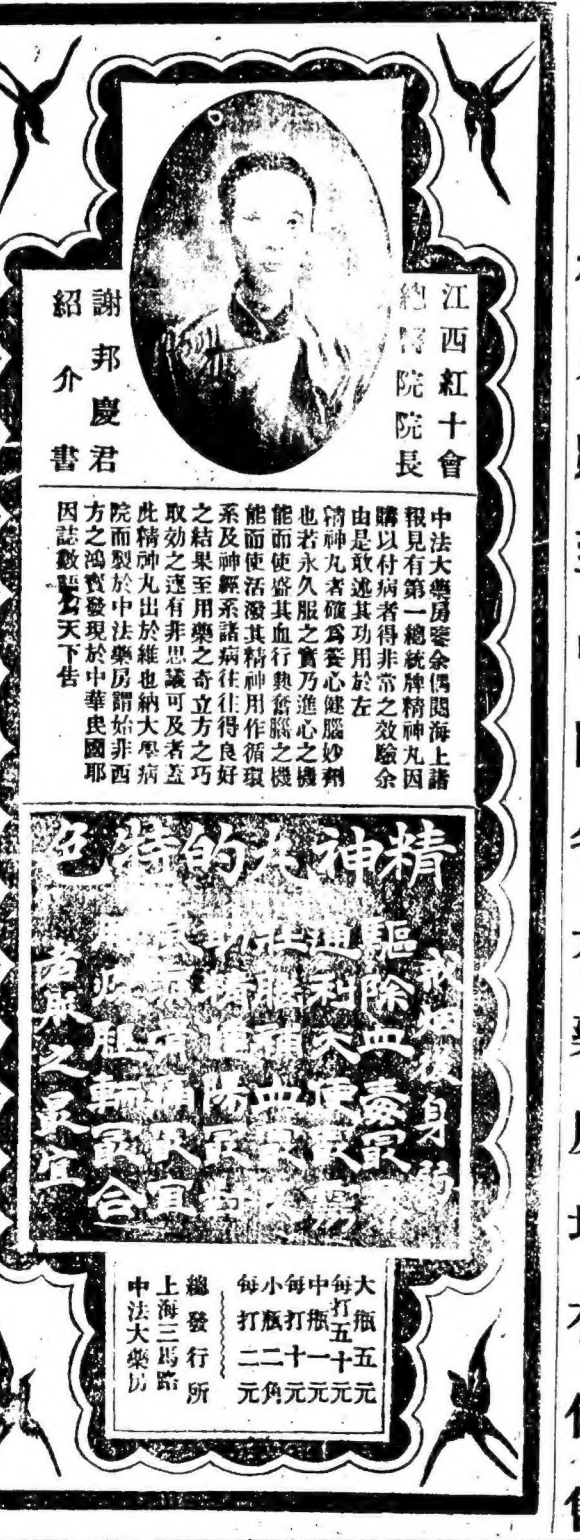 江西紅十會
總醫院院長
謝邦慶君
紹介書
中法大藥房鑒余偶閱海上諸
報見有第一總統牌精神丸因
購以付病者得非常之效驗余
由是敢述其功用於左
精神丸者確爲養心健腦妙劑
也若永久服之實乃進心之機
能而使盛其血行興奮腦之機
能而使活潑其精神用作循環
系及神經系諸病往往得良好
之結果至用藥之奇立方之巧
取効之速有非思議可及者蓋
此精神丸出於維也納大學病
院而製於中法藥房謂始非西
方之鴻寶發現於中華民國耶
因誌數語天下告
精神丸的特色
戒烟後身弱
驅除血毒最
通利大便最
補血最
助精種陽最
最宜
最合
者服之最宜
大瓶五元
每打五十元
中瓶一元
每打十元
小瓶二角
每打二元
總發行所
上海三馬路
中法大藥房